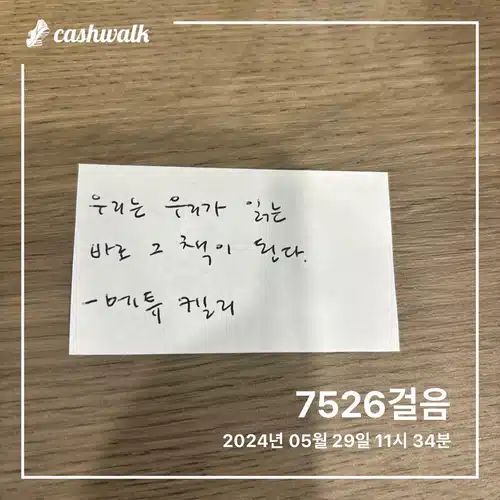 cashwalk
우리는 우리가 읽는
바로 그 책이 된다.
- 메튜 켈리
7526걸음
2024년 05월 29일 11시 34분